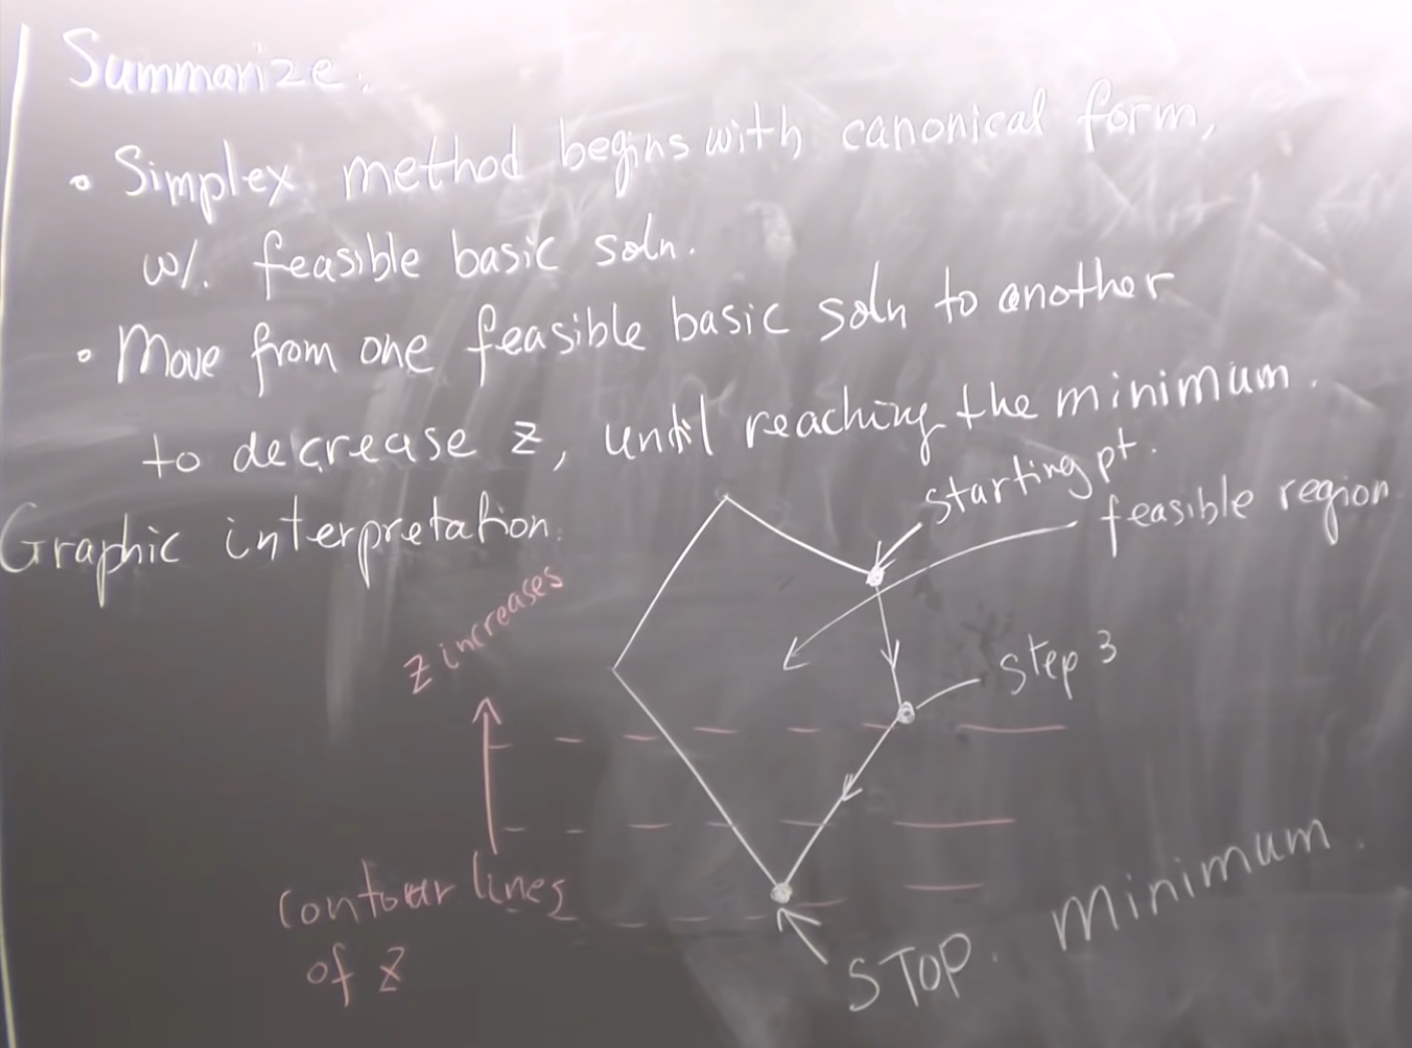 Summarize:
• Simplex method begins with canonical form,
w/. feasible basic soln.
• Move from one feasible basic soln to another
to decrease z, until reaching the minimum.
Graphic interpretation.
starting pt.
feasible region
z increases
step 3
contour lines
of z
STOP. minimum.